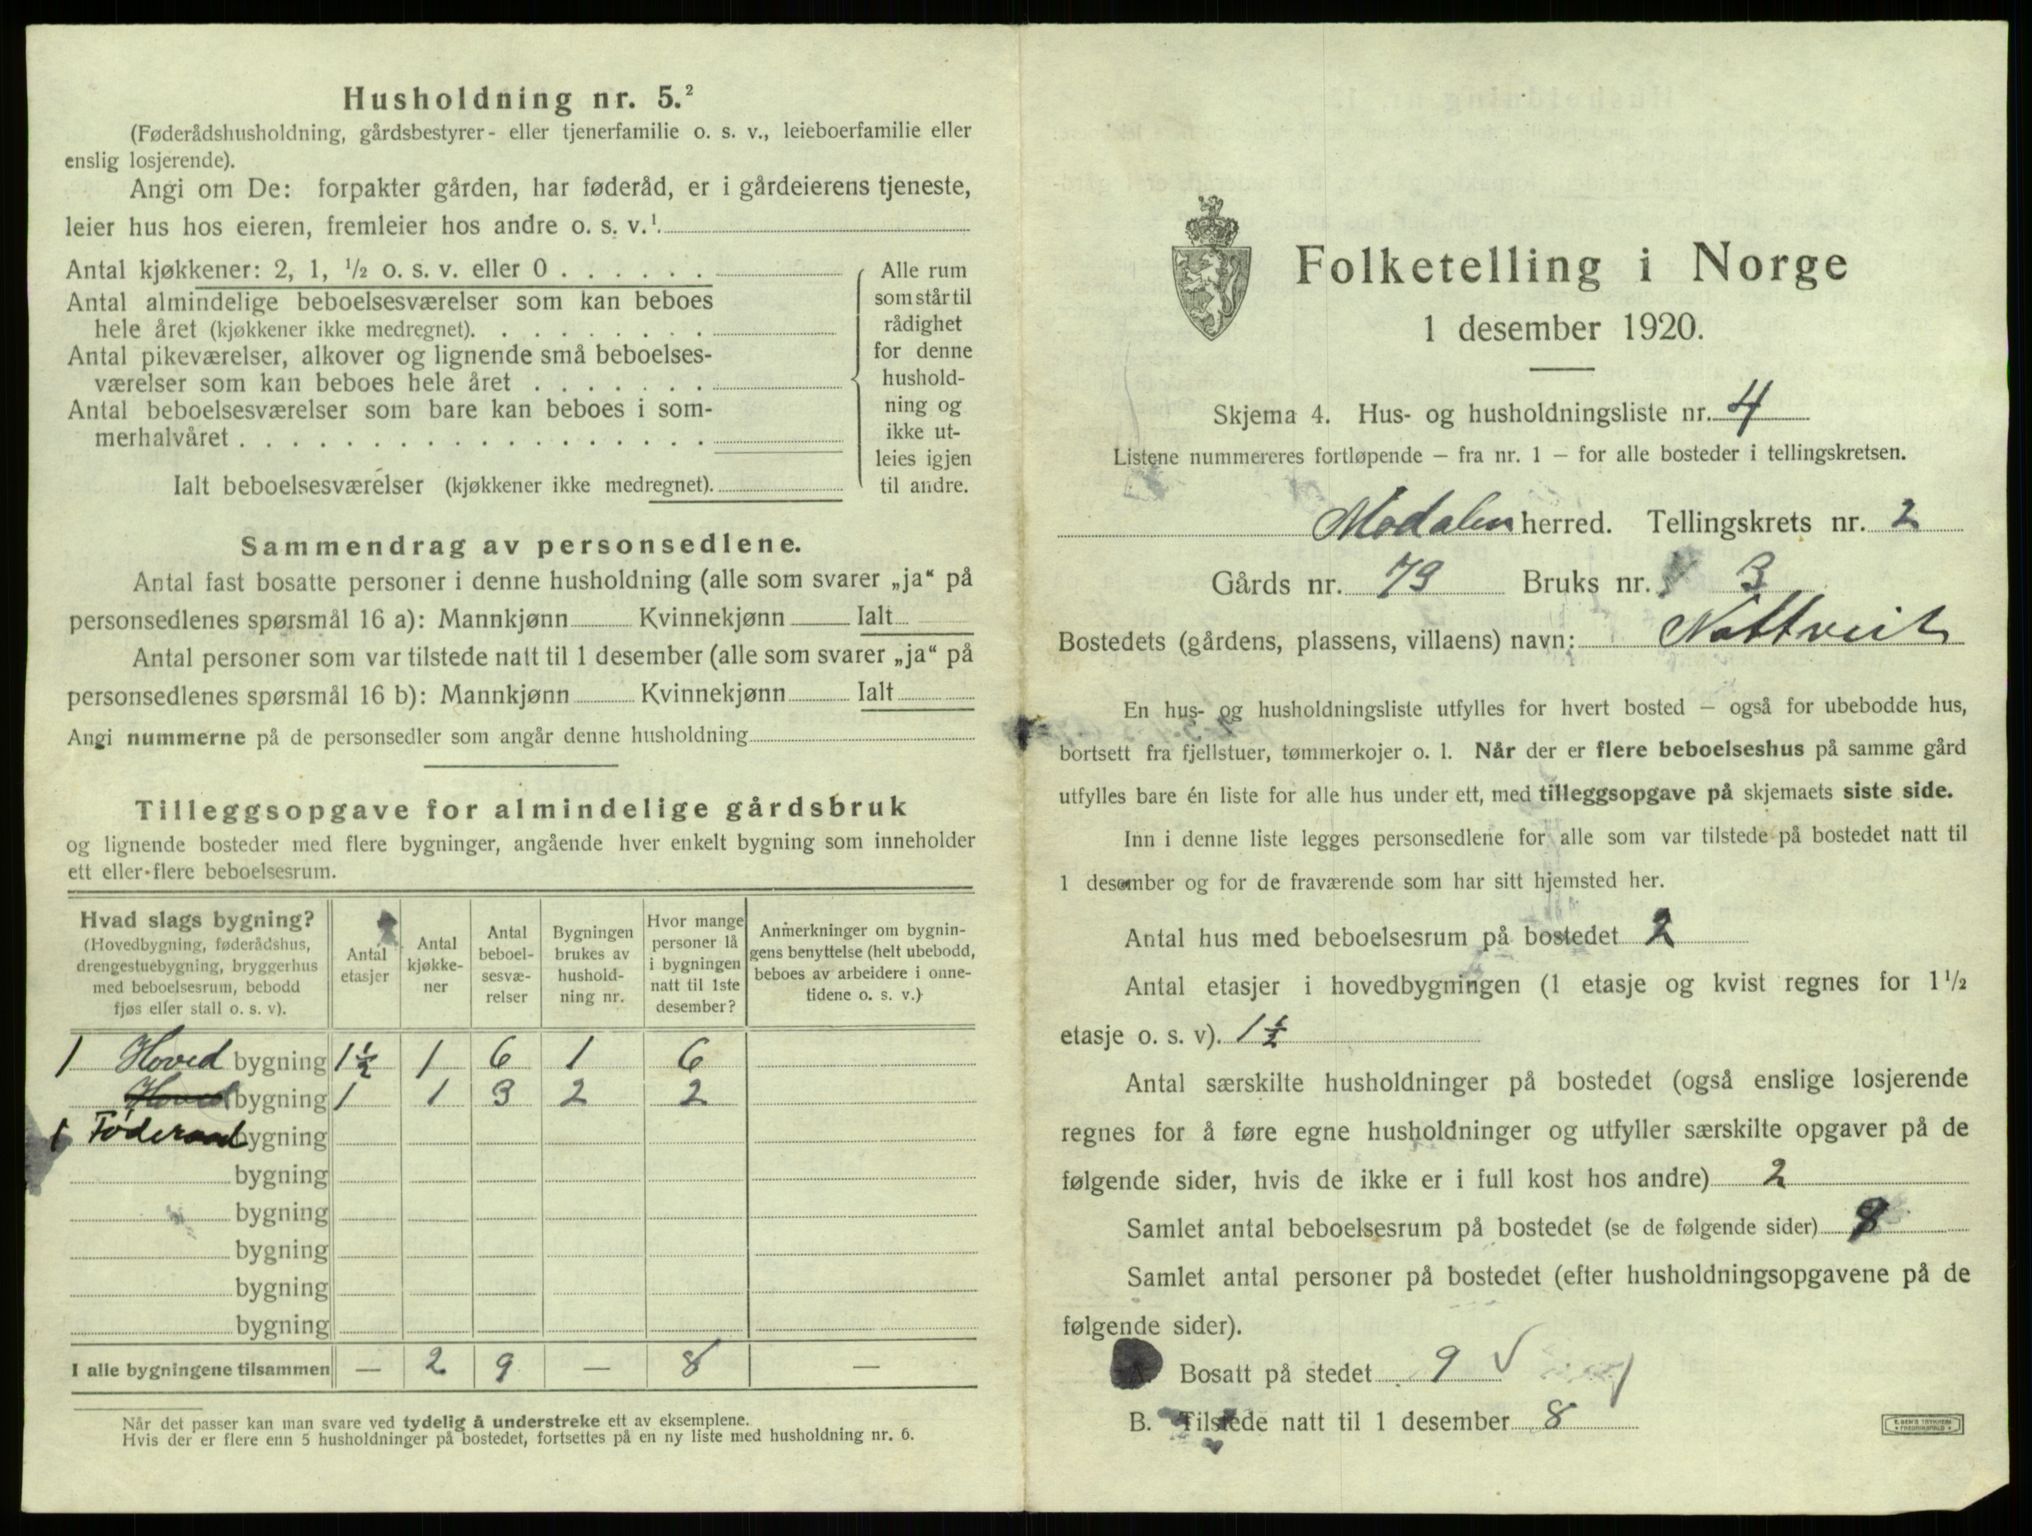 Husholdning nr. 5.²
(Føderådshusholdning, gårdsbestyrer- eller tjenerfamilie o. s. v., leieboerfamilie eller
enslig losjerende).
Angi om De: forpakter gården, har føderåd, er i gårdeierens tjeneste,
leier hus hos eieren, fremleier hos andre o. s. v.¹.
Antal kjøkkener: 2, 1, ½ o. s. v. eller 0 . . . . . .
Antal almindelige beboelsesværelser som kan beboes
hele året (kjøkkener ikke medregnet). . . . . . . . .
Antal pikeværelser, alkover og lignende små beboelses-
værelser som kan beboes hele året . . . . . . .
Antal beboelsesværelser som bare kan beboes i som-
merhalvåret . . . . . . . . . . . . . . . . . .
Ialt beboelsesværelser (kjøkkener ikke medregnet).
Alle rum
som står til
rådighet
for denne
hushold-
ning og
ikke ut-
leies igjen
til andre.
Sammendrag av personsedlene.
Antal fast bosatte personer i denne husholdning (alle som svarer „ja“ på
personsedlenes spørsmål 16 a): Mannkjønn Kvinnekjønn Ialt
Antal personer som var tilstede natt til 1 desember (alle som svarer „ja“ på
personsedlenes spørsmål 16 b): Mannkjønn Kvinnekjønn Ialt
Angi nummerne på de personsedler som angår denne husholdning
Tilleggsopgave for almindelige gårdsbruk
og lignende bosteder med flere bygninger, angående hver enkelt bygning som inneholder
ett eller flere beboelsesrum.
Hvad slags bygning?
(Hovedbygning, føderådshus,
drengestuebygning, bryggerhus
med beboelsesrum, bebodd
fjøs eller stall o. s. v).
Antal
etasjer
Antal
kjøkke-
ner
Antal
beboel-
sesvæ-
relser
Bygningen
brukes av
hushold-
ning nr.
Hvor mange
personer lå
i bygningen
natt til 1ste
desember?
Anmerkninger om bygnin-
gens benyttelse (helt ubebodd,
beboes av arbeidere i onne-
tidene o. s. v.)
1 Hoved bygning 1½ 1 6 1 6
Hoved bygning 1 1 3 2 2
1 Føderaad bygning
bygning
bygning
bygning
bygning
bygning
I alle bygningene tilsammen — 2 9 — 8 —
Når det passer kan man svare ved tydelig å understreke ett av eksemplene.
Hvis der er flere enn 5 husholdninger på bostedet, fortsettes på en ny liste med husholdning nr. 6.
Folketelling i Norge
1 desember 1920.
Skjema 4. Hus- og husholdningsliste nr. 4
Listene nummereres fortløpende – fra nr. 1 – for alle bosteder i tellingskretsen.
Modalen herred. Tellingskrets nr. 2
Gårds nr. 79 Bruks nr. 3
Bostedets (gårdens, plassens, villaens) navn: Nottveit
En hus- og husholdningsliste utfylles for hvert bosted – også for ubebodde hus,
bortsett fra fjellstuer, tømmerkojer o. l. Når der er flere beboelseshus på samme gård
utfylles bare én liste for alle hus under ett, med tilleggsopgave på skjemaets siste side.
Inn i denne liste legges personsedlene for alle som var tilstede på bostedet natt til
1 desember og for de fraværende som har sitt hjemsted her.
Antal hus med beboelsesrum på bostedet 2
Antal etasjer i hovedbygningen (1 etasje og kvist regnes for 1½
etasje o. s. v). 1½
Antal særskilte husholdninger på bostedet (også enslige losjerende
regnes for å føre egne husholdninger og utfyller særskilte opgaver på de
følgende sider, hvis de ikke er i full kost hos andre) 2
Samlet antal beboelsesrum på bostedet (se de følgende sider) 9
Samlet antal personer på bostedet (efter husholdningsopgavene på de
følgende sider).
Bosatt på stedet 9 √
B. Tilstede natt til 1 desember 8